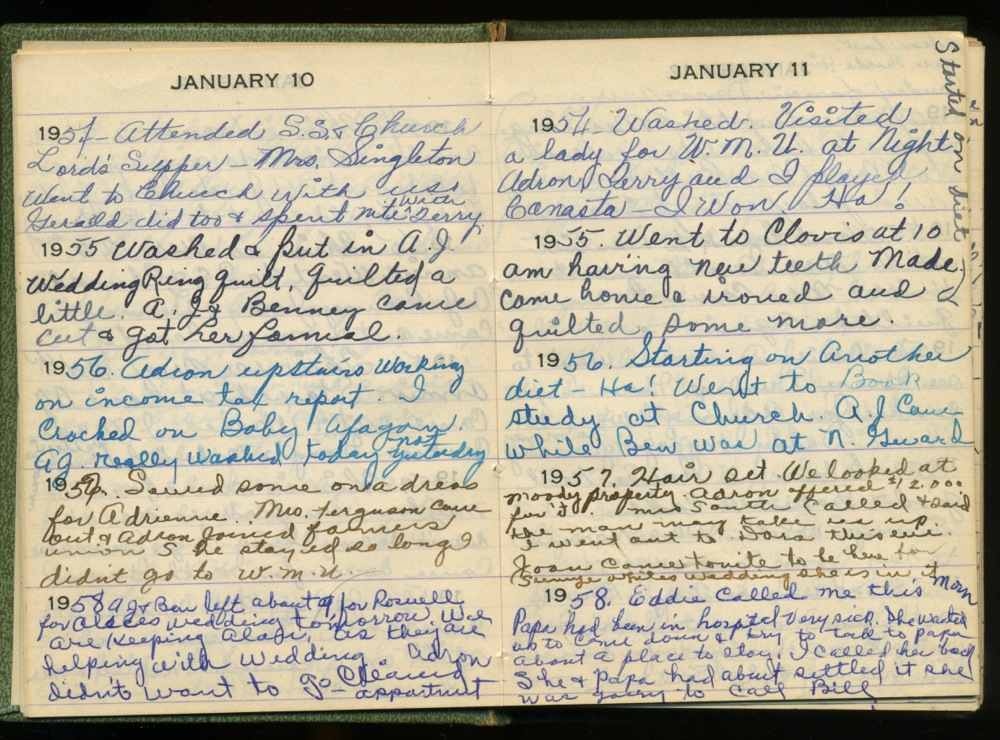 JANUARY 10
1954 - Attended S.S. & Church
Lord's Supper - Mrs. Singleton
Went to Church with us.
Gerald did too & spent nite with Jerry.
1955 Washed & put in A.J.
Wedding Ring quilt, quilted a
little. A.J & Benney came
out & got her formal.
1956. Adron upstairs working
on income tax report. I
Crocked on Baby Afagan.
A.J. really washed today not yesterday
195 . Sewed some on a dress
for Adrienne. Mrs. Ferguson came
out & Adron Joined farmers
union She stayed so long I
didn't go to W.M.U.
1958 AJ & Ben left about 9 for Roswell
for wedding tomorrow. We
are keeping Alan, as they are
helping with wedding. Adron
didn't want to go - Cleaning
appartment
JANUARY 11
Started on diet
1954 - Washed. Visited
a lady for W.M.U. at Night.
Adron Jerry and I played
Canasta - I Won. Ha!
1955. Went to Clovis at 10
am having new teeth Made.
Came home & ironed and
quilted some more.
1956. Starting on Another
diet - Ha! Went to Book
study at Church. A.J Came
while Ben was at N. Guard
1957. Hair set. We looked at
Moody property. Adron offered $12,000
for it. Mrs South Called & said
the man may take us up.
I went out to Dora this eve.
Joan came tonite to be here for
Whites wedding she is in it
1958. Eddie called me this Morn
Papa had been in hospital Very sick. She wanted
us to come down & try to talk to Papa
about a place to stay. I called her back
She & Papa had about settled it she
was sorry to call Bill